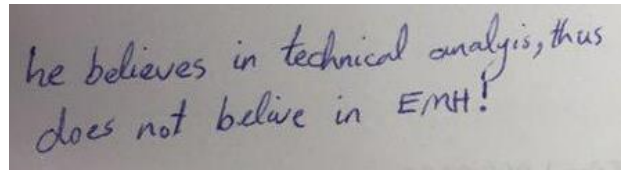 he believes in technical analyis, thus
does not belive in EMH!